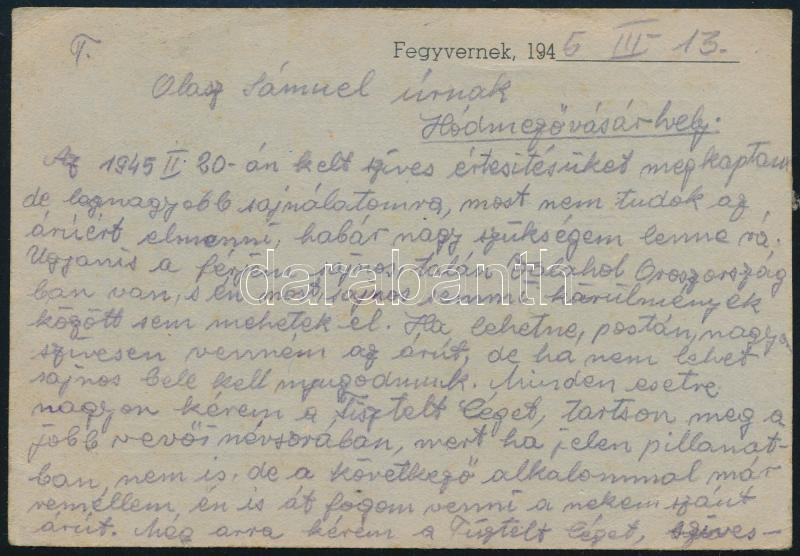 T.
Fegyvernek, 1945 III 13.
Olasz Sámuel úrnak
Hódmezővásárhely.
Az 1945 II. 20-án kelt szíves értesítésüket megkaptam
de legnagyobb sajnálatomra, most nem tudok az
áruért elmenni, habár nagy szükségem lenne rá.
Ugyanis a férjem, sajnos talán valahol Oroszország
ban van, s én most sajnos semmi körülmények
között sem mehetek el. Ha lehetne, postán, nagyon
szívesen venném az árút, de ha nem lehet
sajnos bele kell nyugodnunk. Minden esetre
nagyon kérem a Tisztelt Céget, tartson meg a
jobb vevői névsorában, mert ha jelen pillanat-
ban, nem is, de a következő alkalommal már
remélem, én is át fogom venni a nekem szánt
árút. Még arra kérem a Tisztelt Céget, szíves-
darabanth.com